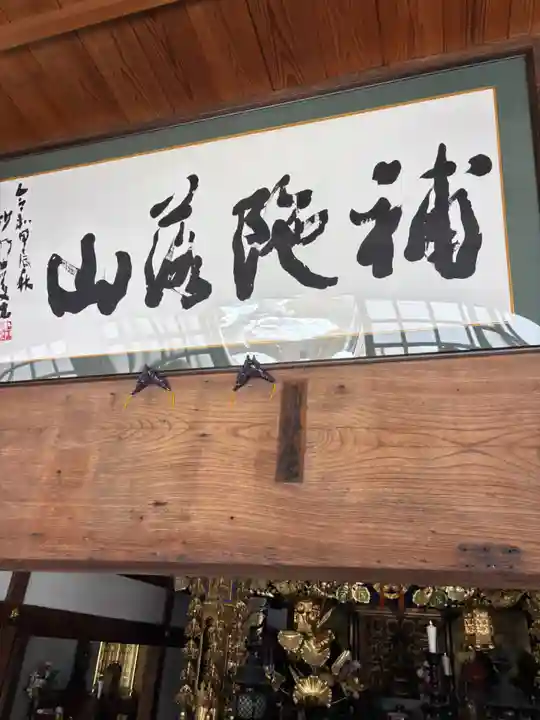 補陀落山
令和甲辰秋